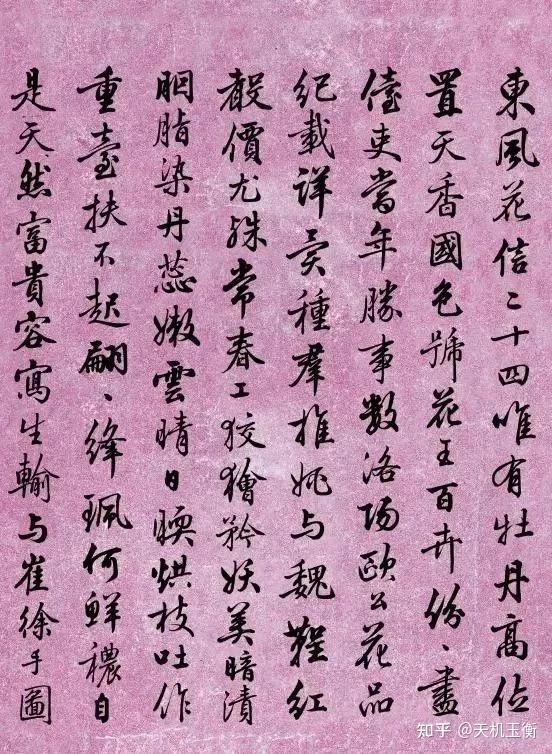 東風花信二十四唯有牡丹高位
置天香國色號花王百卉份〻盡
儓吏當年勝事數洛陽歐公花品
紀載詳異種羣推姚与魏鞓紅
聲價尤殊常春工狡獪矜妖美暗漬
胭脂染丹蕊嫩雲晴日暖烘枝吐作
重臺扶不起翩〻絳珮何鮮穠自
是天然富貴容寫生輸与崔徐手圖
知乎 @天机玉衡